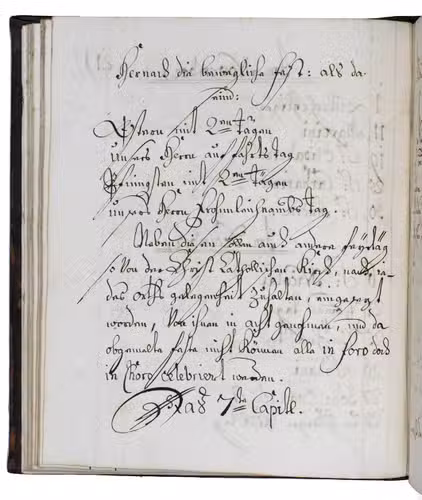 Hernach die bewegliche fest: als da
sein:
Ostern mit 2en tagen
unsers Herrn auffahrts tag
Pfingsten mit 2en tägen
unsers Herrn Frohnleichnambs tag.
Neben disen sollen auch andere feÿrtäg
so von der Christ Catholischen Kirch, nach je-
des orths gelegenheit zuhalten, eingesezt
worden, von ihnen in acht genohmen, und da
obgemelte feste nicht können alle in foro doch
in Choro celebriert werden.
Das 7te Capitl.